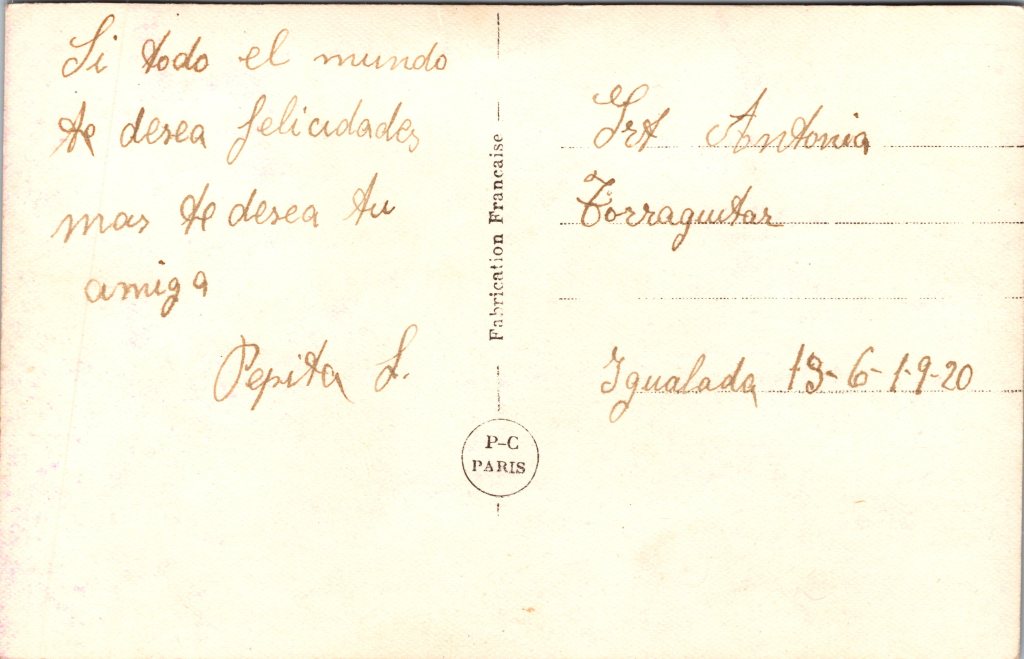 Si todo el mundo
te desea felicidades
mas te desea tu
amiga
Pepita L.
Fabrication Francaise
P-C
PARIS
Srt Antonia
Torraguitar
Igualada 13-6-1-9-20